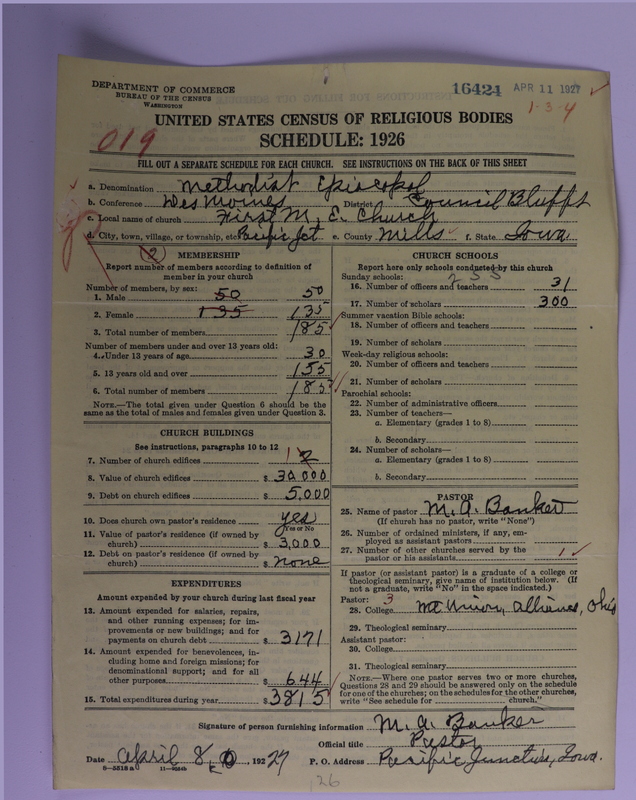 DEPARTMENT OF COMMERCE
BUREAU OF THE CENSUS
WASHINGTON
16424 APR 11 1927
1-3-4
019
UNITED STATES CENSUS OF RELIGIOUS BODIES
SCHEDULE: 1926
FILL OUT A SEPARATE SCHEDULE FOR EACH CHURCH. SEE INSTRUCTIONS ON THE BACK OF THIS SHEET
a. Denomination Methodist Episcopal
b. Conference Des Moines District Council Bluffs
c. Local name of church First M. E. Church
d. City, town, village, or township, etc. Pacific Jct e. County Mills f. State Iowa
2
MEMBERSHIP
Report number of members according to definition of member in your church
Number of members, by sex:
1. Male 50 50
2. Female 135 135
3. Total number of members 185
Number of members under and over 13 years old:
4. Under 13 years of age 30
5. 13 years old and over 155
6. Total number of members 185
NOTE.—The total given under Question 6 should be the same as the total of males and females given under Question 3.
CHURCH BUILDINGS
See instructions, paragraphs 10 to 12
7. Number of church edifices 1 2
8. Value of church edifices $ 30,000
9. Debt on church edifices $ 5,000
10. Does church own pastor's residence yes
Yes or No
11. Value of pastor's residence (if owned by church) $ 3,000
12. Debt on pastor's residence (if owned by church) $ none
EXPENDITURES
Amount expended by your church during last fiscal year
13. Amount expended for salaries, repairs, and other running expenses; for improvements or new buildings; and for payments on church debt $ 3171
14. Amount expended for benevolences, including home and foreign missions; for denominational support; and for all other purposes $ 644
15. Total expenditures during year $ 3815
CHURCH SCHOOLS
Report here only schools conducted by this church
Sunday schools: 233
16. Number of officers and teachers 31
17. Number of scholars 300
Summer vacation Bible schools:
18. Number of officers and teachers
19. Number of scholars
Week-day religious schools:
20. Number of officers and teachers
21. Number of scholars
Parochial schools:
22. Number of administrative officers
23. Number of teachers—
a. Elementary (grades 1 to 8)
b. Secondary
24. Number of scholars—
a. Elementary (grades 1 to 8)
b. Secondary
PASTOR
25. Name of pastor M. A. Banker
(If church has no pastor, write "None")
26. Number of ordained ministers, if any, employed as assistant pastors
27. Number of other churches served by the pastor or his assistants 1
If pastor (or assistant pastor) is a graduate of a college or theological seminary, give name of institution below. (If not a graduate, write "No" in the space indicated.)
Pastor: 3
28. College Mt Union, Alliance, Ohio
29. Theological seminary
Assistant pastor:
30. College
31. Theological seminary
NOTE.—Where one pastor serves two or more churches, Questions 28 and 29 should be answered only on the schedule for one of the churches; on the schedules for the other churches, write "See schedule for church."
Signature of person furnishing information M. A. Banker
Official title Pastor
Date April 8, 1927 P. O. Address Pacific Junction, Iowa.
126